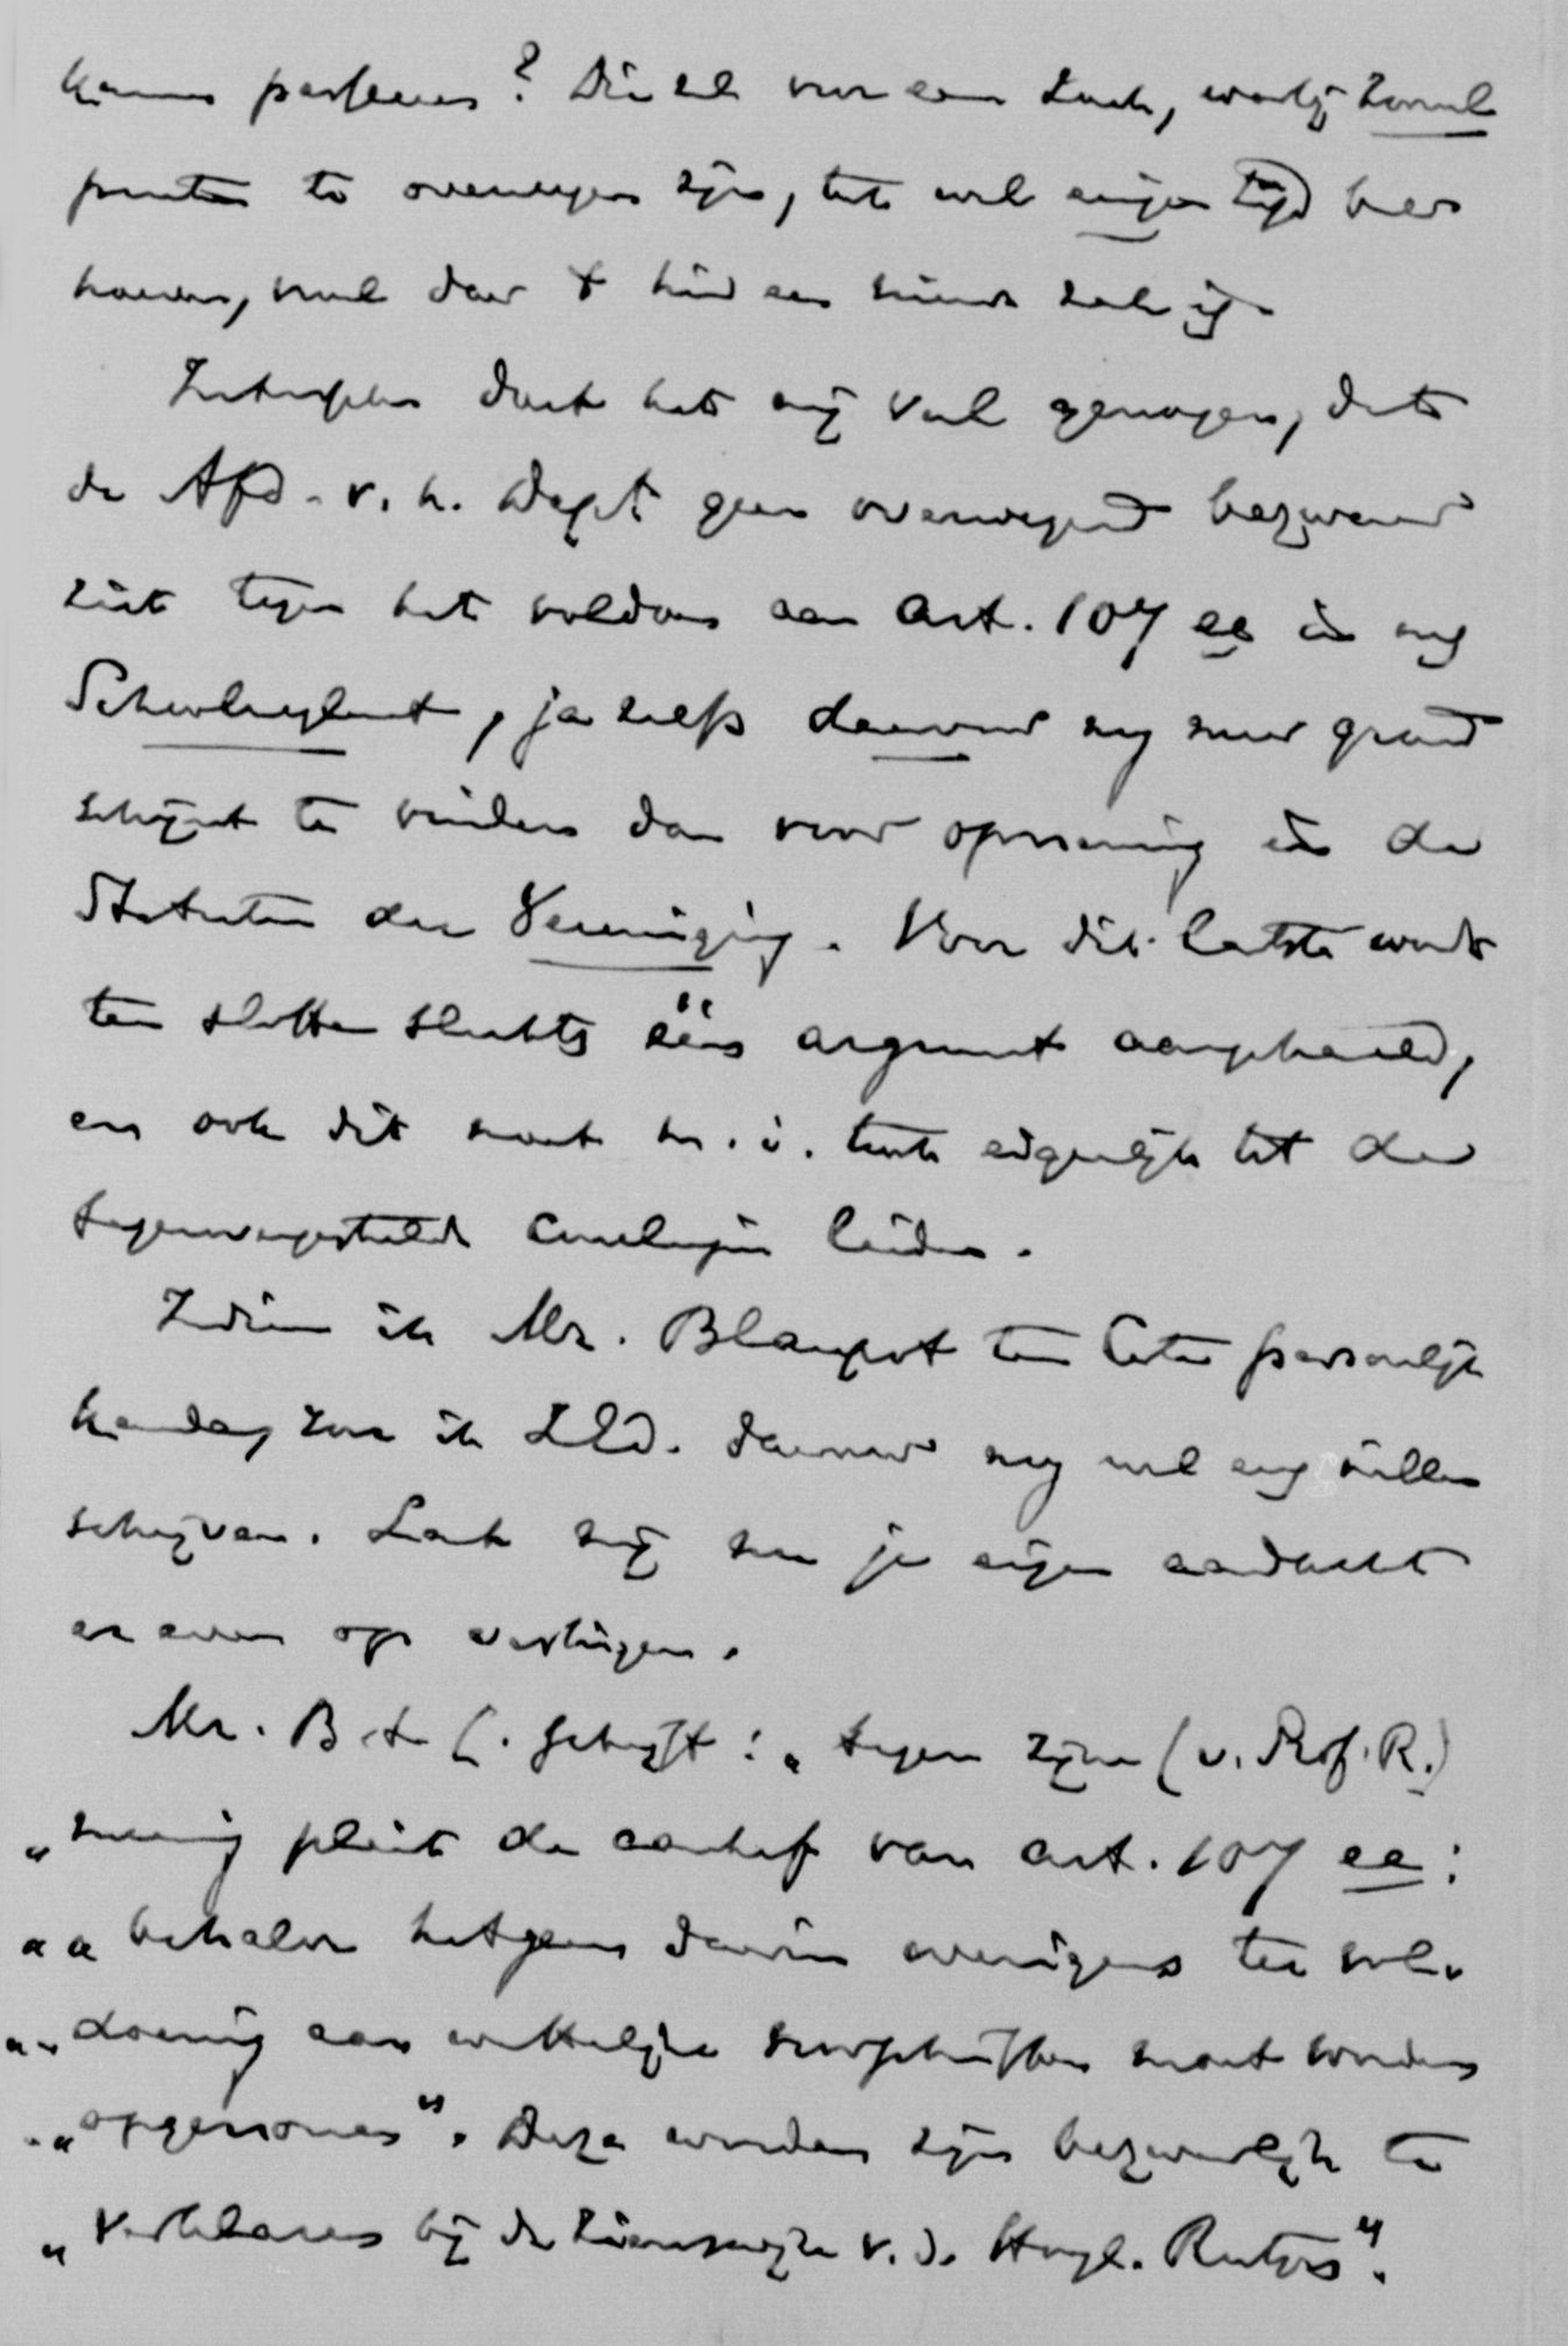 kunnen passeeren? Die zal voor een zaak, waarbij zooveel
punten te overwegen zijn, toch wel eenigen tijd
Intusschen doet het mij veel genoegen, dat
de Afd. v. h. Dept. geen overwegend bezwaar
ziet tegen het voldoen aan art. 107 ee in mijn
Schoolreglement, ja zelfs daarvoor nog meer grond
schijnt te vinden dan voor opneming in de
Statuten der Vereeniging. Voor dit laatste wordt
ten slotte slechts één argument aangehaald,
en ook dit moet m. i. toch eigenlijk tot de
tegenovergestelde conclusie leiden.
Indien ik Mr. Blaupot ten Cate persoonlijk
kende, zou ik ZEd. daarover nog wel eens willen
schrijven. Laat mij nu je eigen aandacht
er even op vestigen.
Mr. B. t. C. schrijft: „tegen zijne (v. Prof. R.)
„meening pleit de aanhef van art. 107 ee:
„„behalve hetgeen daarin overigens ter vol-
„„doening aan wettelijke voorschriften moet worden
„„opgenomen”. Deze woorden zijn bezwaarlijk te
„verklaren bij de zienswijze v. d. Hoogl. Rutgers”.